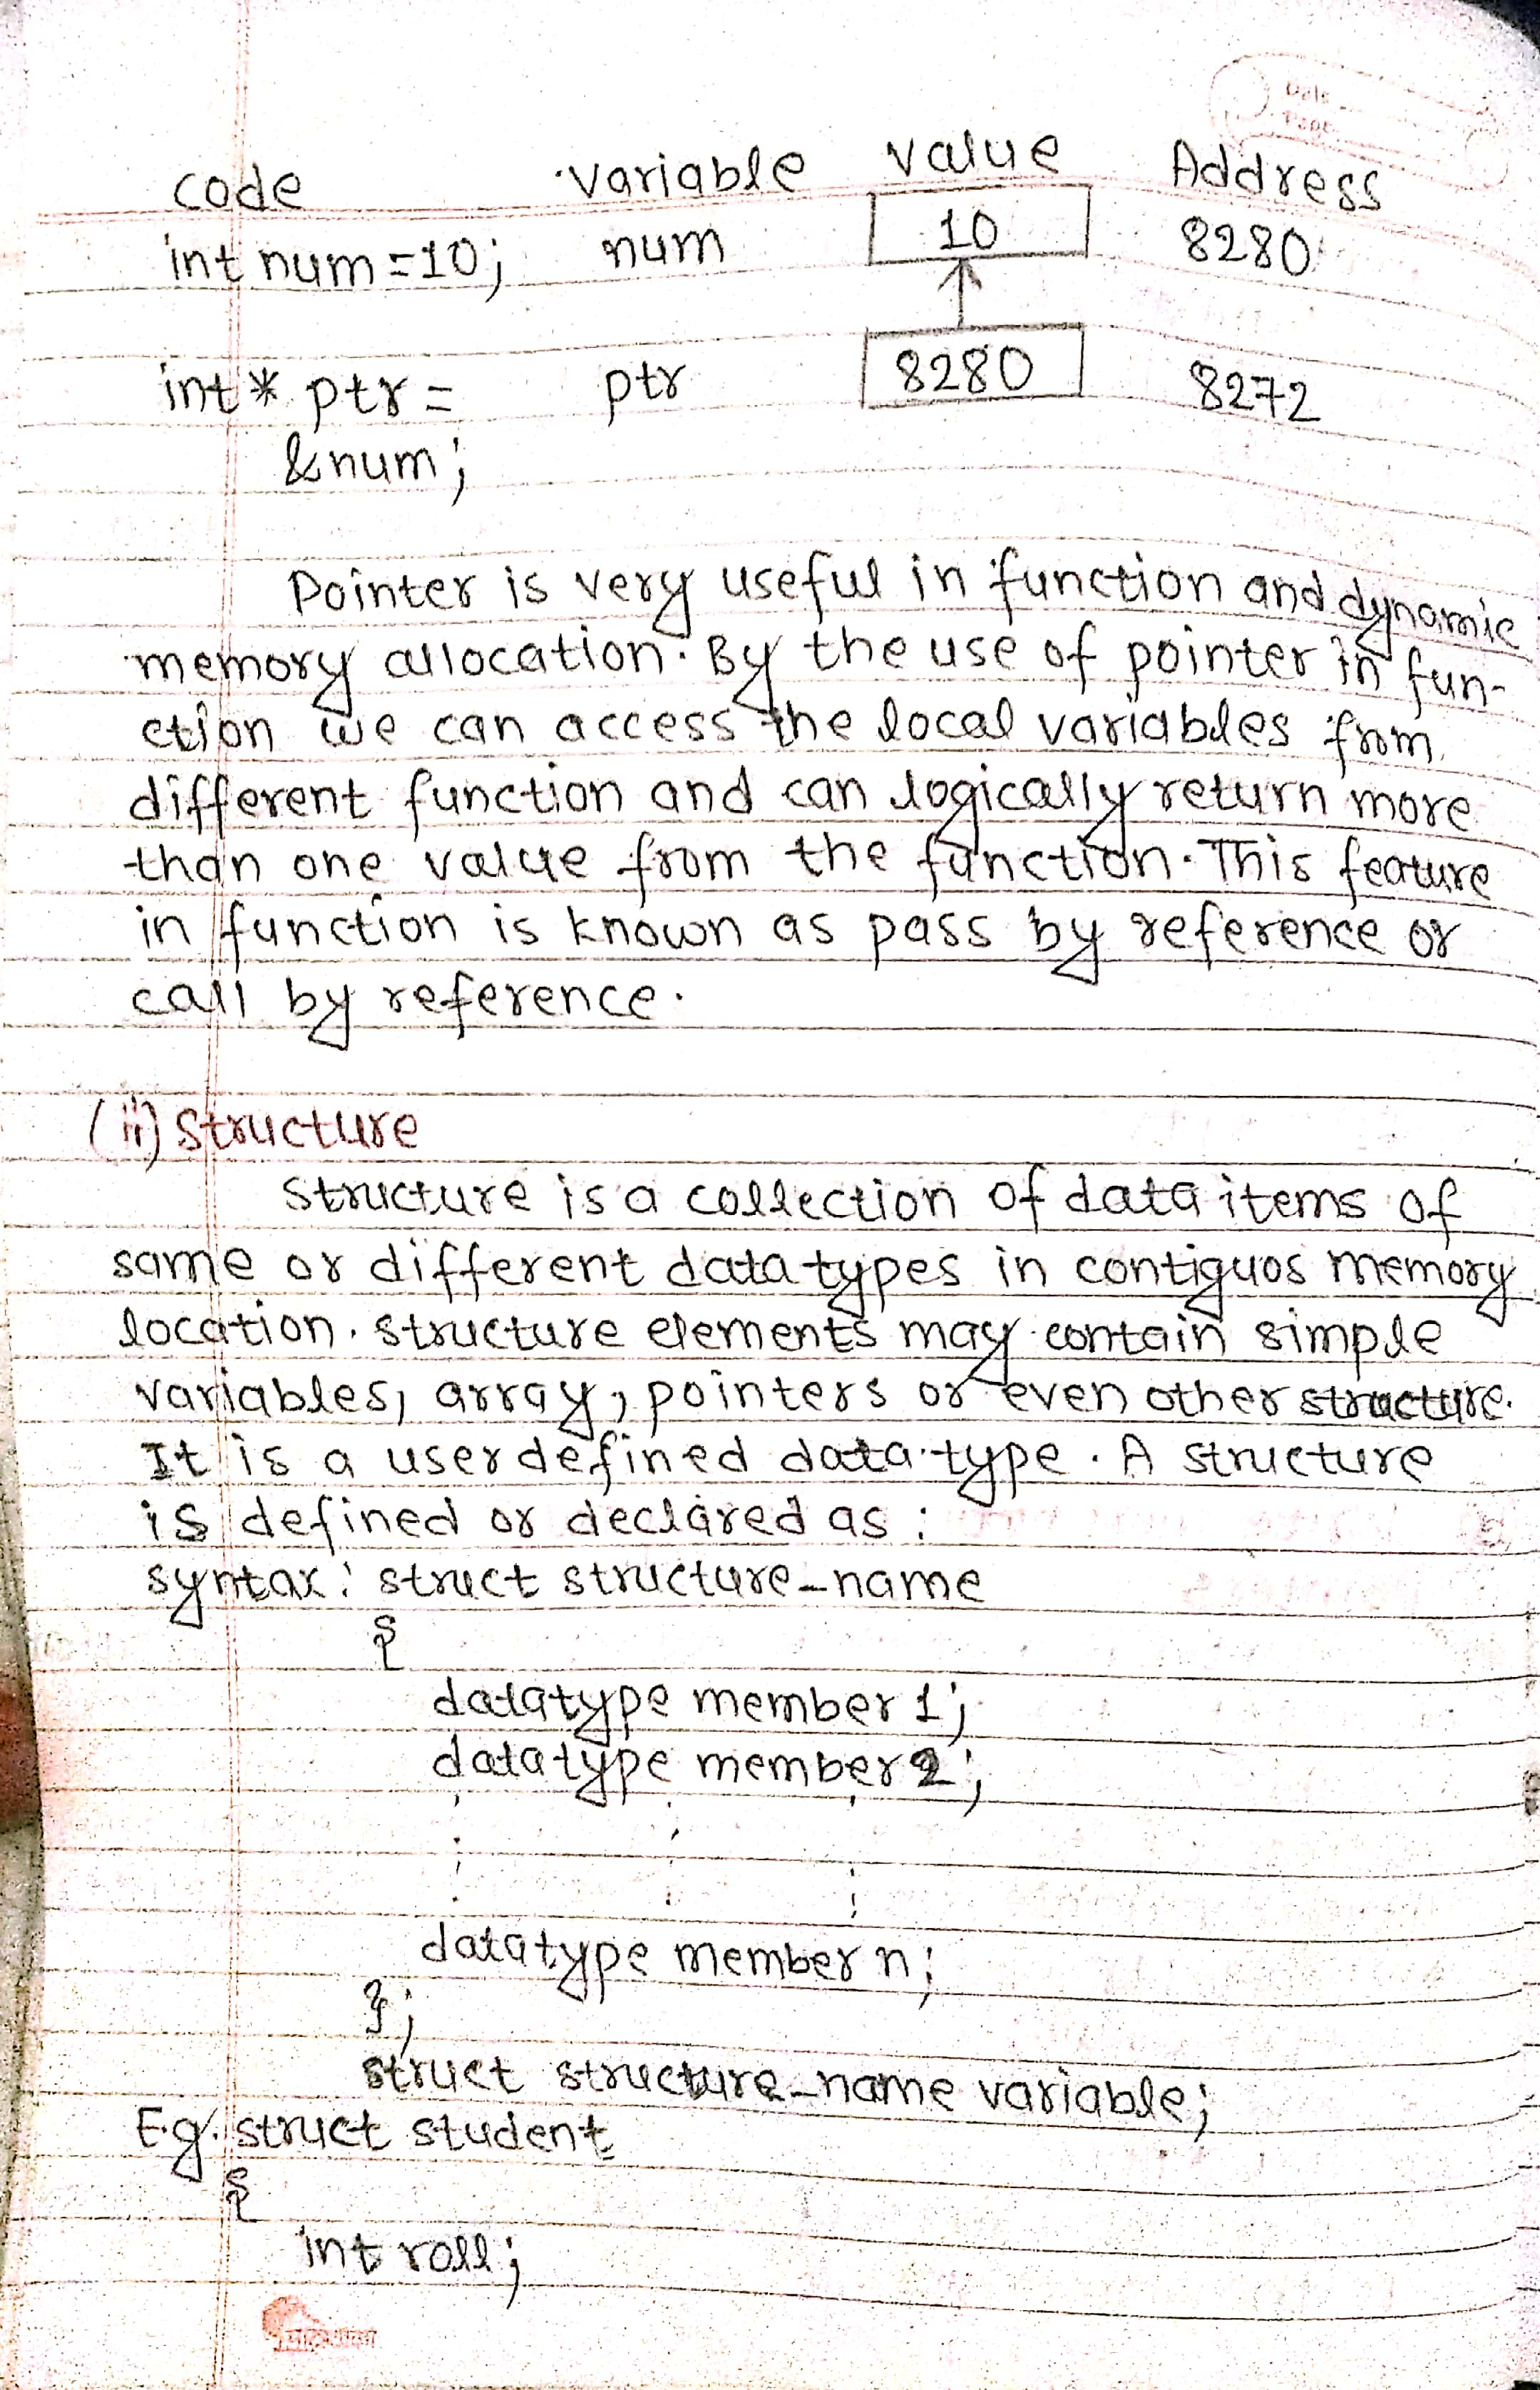 Date
Page
code variable value Address
int num=10; num 10 8280
int* ptr= ptr 8280 8272
&num;
Pointer is very useful in function and dynamic
memory allocation. By the use of pointer in fun-
ction we can access the local variables from
different function and can logically return more
than one value from the function. This feature
in function is known as pass by reference or
call by reference.
(ii) Structure
Structure is a collection of data items of
same or different data types in contiguos memory
location. structure elements may contain simple
variables, array, pointers or even other structure.
It is a user defined data type. A structure
is defined or declared as :
syntax: struct structure_name
{
datatype member 1;
datatype member 2;
datatype member n;
};
struct structure_name variable;
E.g. struct student
{
int roll;